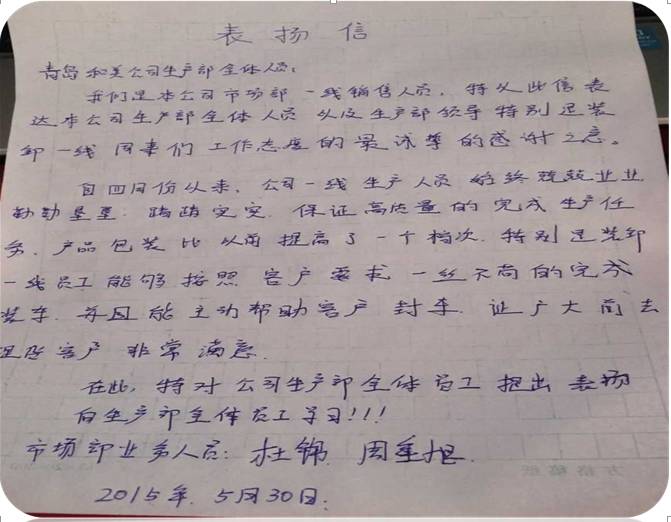 表扬信
青岛和美公司生产部全体人员:
我们是本公司市场部一线销售人员,特以此信表
达本公司生产部全体人员以及生产部领导特别是装
卸一线同事们工作态度的最诚挚的感谢之意。
自四月份以来,公司一线生产人员始终兢兢业业
勤勤垦垦.踏踏实实.保证高质量的完成生产任
务.产品包装比以前提高了一个档次.特别是装卸
一线员工能够按照客户要求一丝不苟的完成
装车.并且能主动帮助客户封车.让广大前去
客户非常满意.
在此,特对公司生产部全体员工提出表扬
向生产部全体员工学习!!!
市场部业务人员:杜锦 周
2015年.5月30日.
方格稿纸